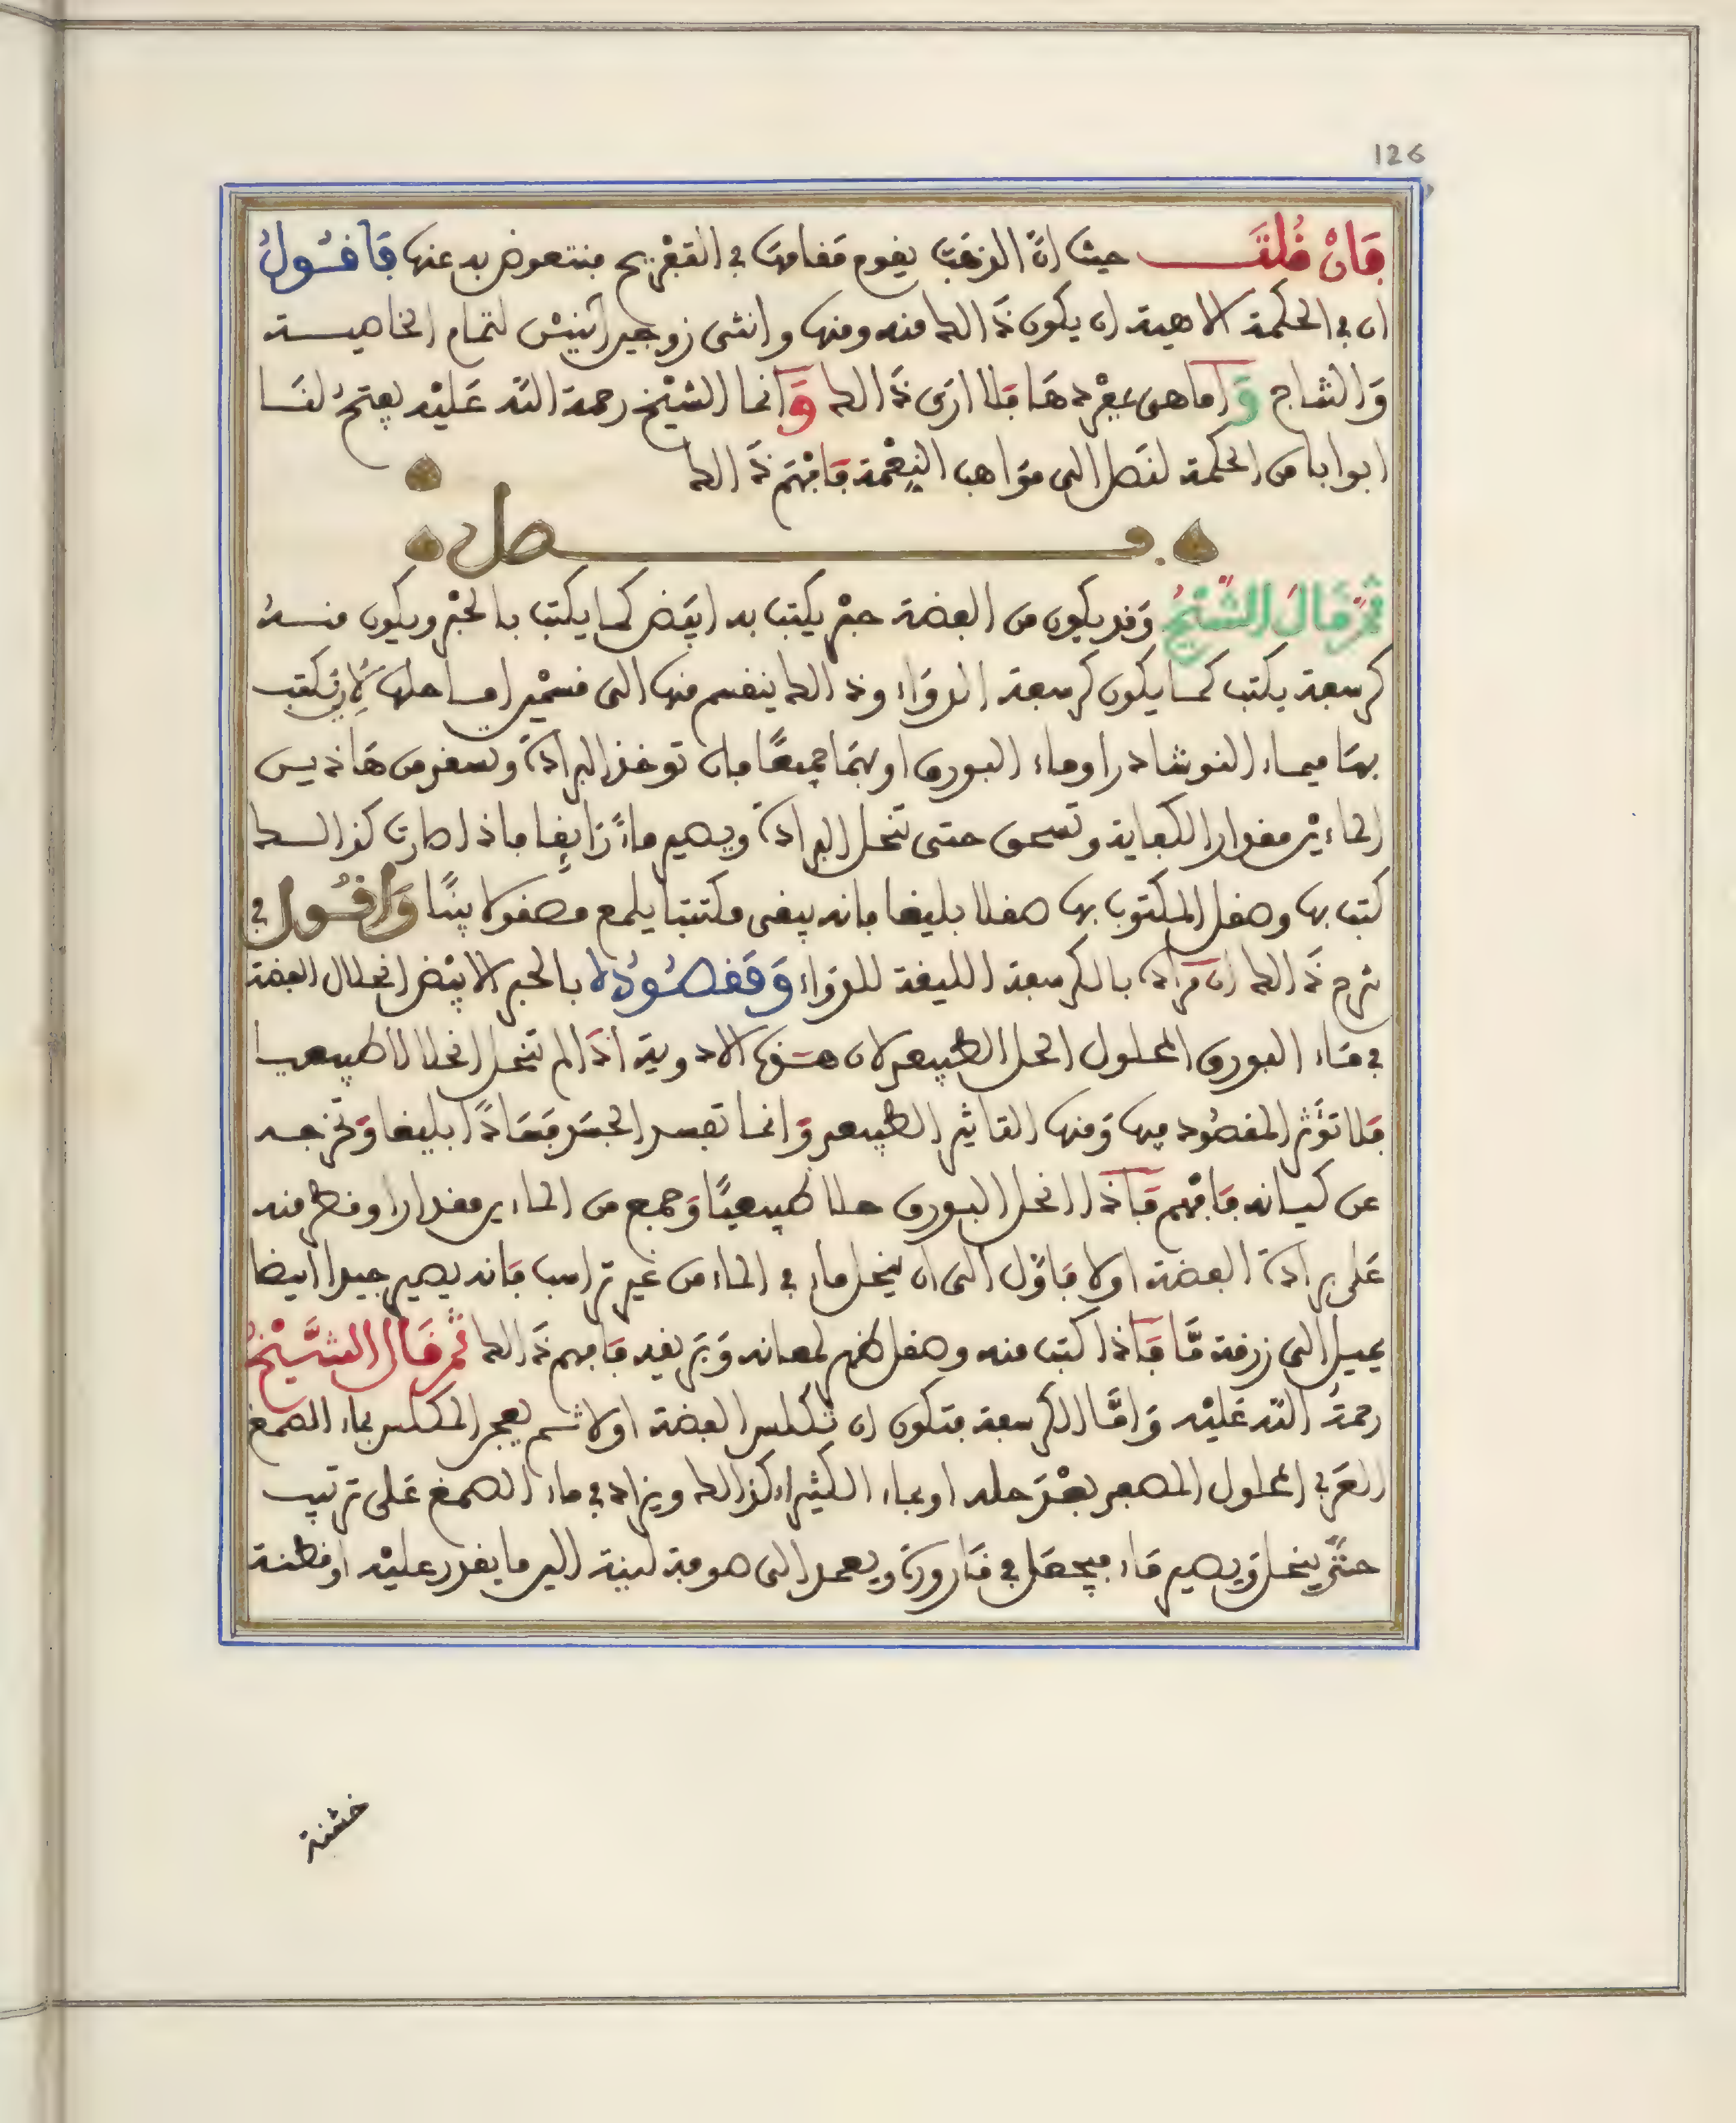 126
فَإنْ قُلتَ حيث انّ الذهَبَ يقوم مَقامهَا في التفْريح فنتعوض به عنها فَأقُولُ
ان في الحكمة الاهية ان يكون ذَالك منه ومنها وانثى زوجين اثنيْن لتمام الخاصية
وَالنتاج وَاماهى بمفْردهَا فلا ارَى ذَالك وَانما الشيْخ رحمة الله عَليْه يفتحُ لنَا
ابوابا من الحكمة لنَصل الى موَاهب النِعْمة فَافْهَم ذَالك
فصل
ثمّ قَالَ الشّيْخُ وَقد يكون من الفضة حبْر يكتب به ابيَض كما يكتب بالحبْر ويكون منهُ
كرسعة يكتب كما يكون كرسعة الدوَاء وذالك ينقسم منها الى قسمْين احدها لِأنْ يكتب
بهَا فبماء النوشادر اوماء البورق اوبهمَا جميعًا فان توخذ البرادَة وتسقى من هَاذين
الماءيْن مقدار الكفاية وتسحق حتى تنحل البرادَة ويصير ماءً رَايِقا فاذا صارت كذالك
كتب بها وصقل المكتوب بها صقلا بليغا فانه يبقى مكتتبا يلمع مصقولا بينًا وَاقُول في
شرح ذَالك ان مرادَه بالكرسعة الليقة للدوَاء وَمَقصُودُه بالحبر الابيَض انحلال الفضة
في مَاء البورق المحلول الحل الطبيعى لان هذه الادوية اذَالم تنحل انحلالا طبيعيا
فلا تؤَثر المقصُود فيها وَمنها التاثير الطبيعى وَانما تفسد الجسَد فسَادًا بليغا وَتخرجه
عن كيانه فَافْهم فَاذَا انحل البورق حلا طبيعيًا وَجمع من الماءين مقدارا وقطر منه
عَلى برادَة الفضة اولا فَاوّل الى ان ينحل ماء في الماء من غير تراسب فَانه يصير جيدا ابيضا
يميل الى زرقة مَّا فَاذَا كتب منه وصقل ظهر لمعانه وَبَريقه فَافهم ذَالك ثم قَال الشَّيْخُ
رحمةُ الله عَليْه وَامَّا الكرسعة فتكون ان تُكلس الفضة اولا ثم يعجن المكلس بماء الصمغ
العَربي المحلول المصعد بعْدَ حله اوبماء الكثيراء كذالك ويزاد في ماء الصمغ عَلى ترتيب
حتىّ ينحل وَيصير مَاء فيجعَل في قَارورة ويعمل الى صوفة لينة اليد ما يقدر عليْه اوقطنة
خشنة